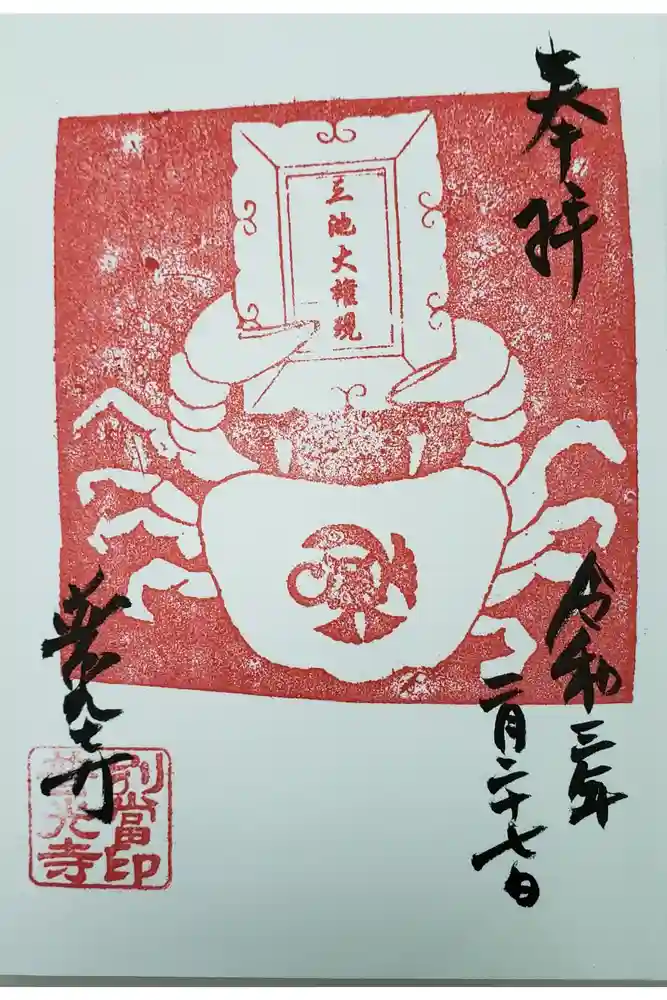 奉拝
三池大権現
令和三年
二月二十七日
普光寺
別當印
普光寺